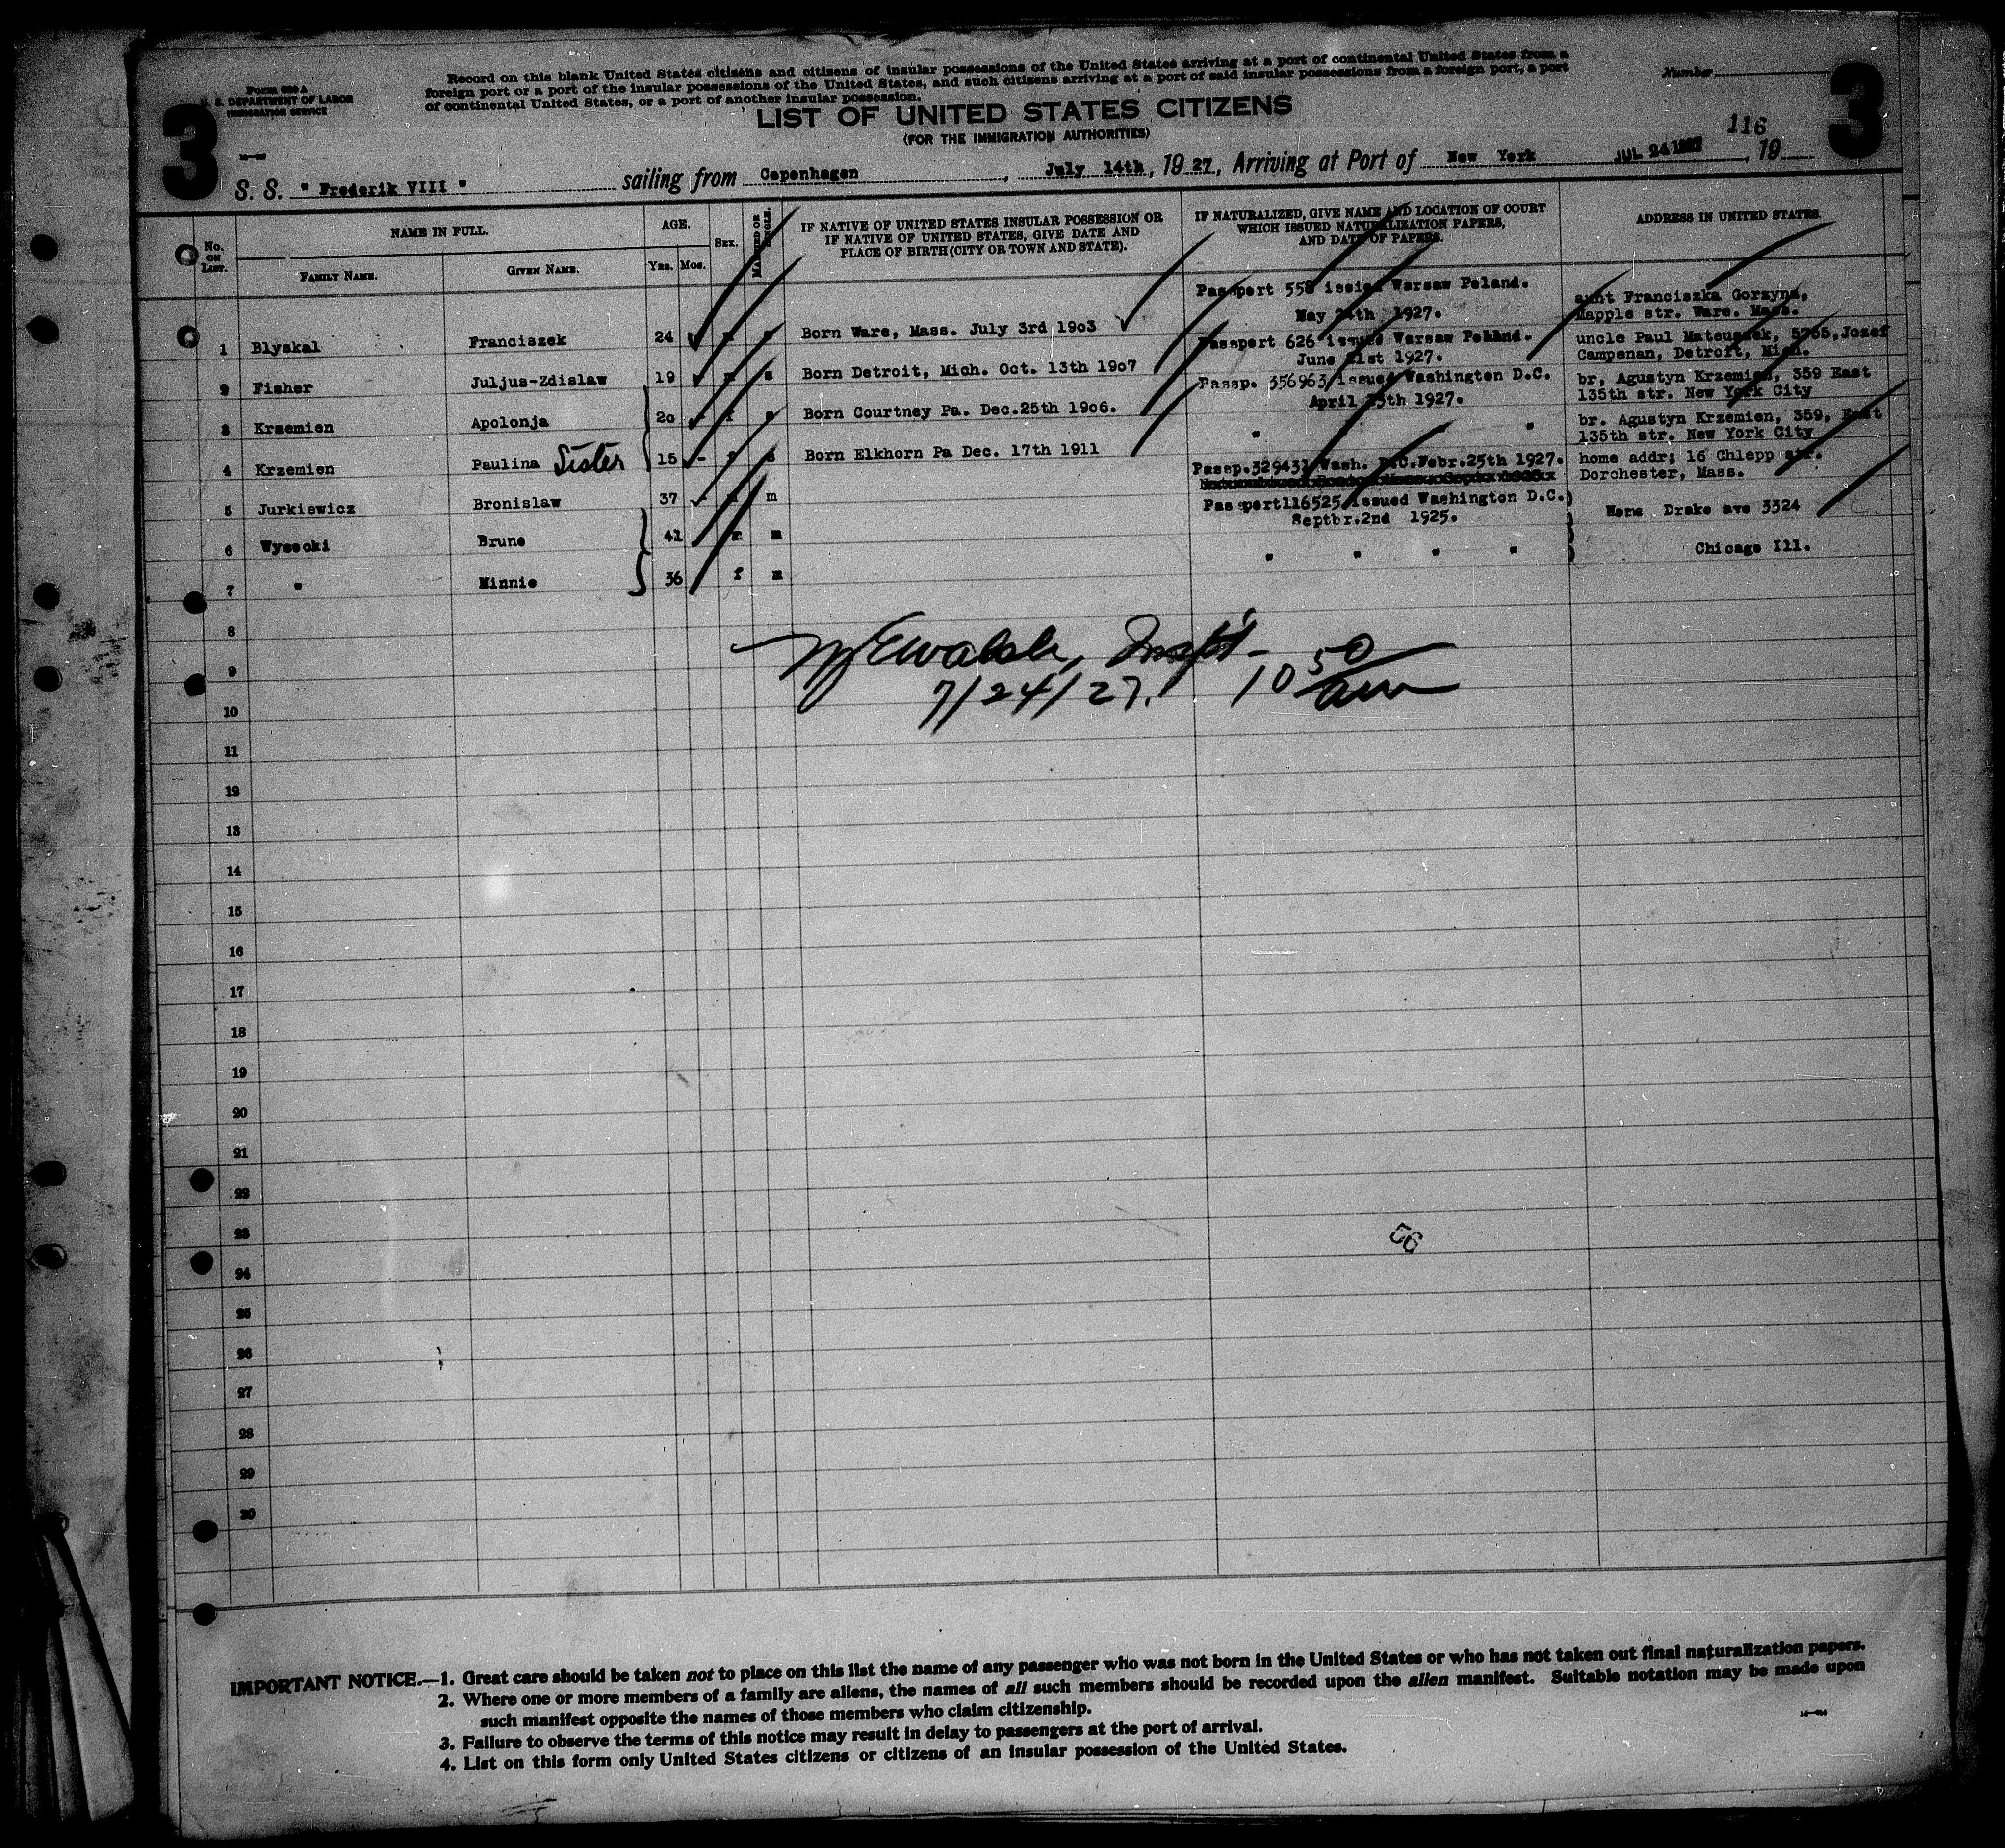 3
Form 630 A
U. S. DEPARTMENT OF LABOR
IMMIGRATION SERVICE
Record on this blank United States citizens and citizens of insular possessions of the United States arriving at a port of continental United States from a
foreign port or a port of the insular possessions of the United States, and such citizens arriving at a port of said insular possessions from a foreign port, a port
of continental United States, or a port of another insular possession.
Number
3
LIST OF UNITED STATES CITIZENS
(FOR THE IMMIGRATION AUTHORITIES)
116
S. S. " Frederik VIII " sailing from Copenhagen, July 14th, 1927, Arriving at Port of New York JUL 24 1927, 19
No. ON LIST. NAME IN FULL. AGE. SEX. MARRIED OR SINGLE. IF NATIVE OF UNITED STATES INSULAR POSSESSION OR IF NATIVE OF UNITED STATES, GIVE DATE AND PLACE OF BIRTH (CITY OR TOWN AND STATE). IF NATURALIZED, GIVE NAME AND LOCATION OF COURT WHICH ISSUED NATURALIZATION PAPERS, AND DATE OF PAPERS. ADDRESS IN UNITED STATES.
FAMILY NAME. GIVEN NAME. YRS. MOS.
1 Blyskal Franciszek 24 Born Ware, Mass. July 3rd 1903 Passport 558 issied Warsaw Peland. May 24th 1927. aunt Franciszka Gorzyna, Mapple str. Ware. Mass.
2 Fisher Juljus-Zdislaw 19 s Born Detroit, Mich. Oct. 13th 1907 Passport 626 issued Warsaw Peland. June 21st 1927. uncle Paul Mateuszek, 5765, Jozef Campenan, Detroit, Mich.
3 Krzemien Apolonja 20 Born Courtney Pa. Dec.25th 1906. Passp. 356963 issued Washington D.C. April 15th 1927. br, Agustyn Krzemien, 359 East 135th str. New York City
4 Krzemien Paulina Sister 15 - s Born Elkhorn Pa Dec. 17th 1911 " " br. Agustyn Krzemien, 359, East 135th str. New York City
5 Jurkiewicz Bronislaw 37 m Passp.329431 Wash. D.C.Febr.25th 1927. home addr; 16 Chlepp str. Dorchester, Mass.
6 Wysecki Brune 41 m m Passport116525 issued Washington D.C. Septbr.2nd 1925. Heme Drake ave 3324
7 " Minnie 36 f m " " " " Chicago Ill.
8
9
10
11
12
13
14
15
16
17
18
19
20
21
22
23
24
25
26
27
28
29
30
Walsh, Insp't-
7/24/27. 10 50 am
56
IMPORTANT NOTICE.—1. Great care should be taken not to place on this list the name of any passenger who was not born in the United States or who has not taken out final naturalization papers.
2. Where one or more members of a family are aliens, the names of all such members should be recorded upon the alien manifest. Suitable notation may be made upon
such manifest opposite the names of those members who claim citizenship.
3. Failure to observe the terms of this notice may result in delay to passengers at the port of arrival.
4. List on this form only United States citizens or citizens of an insular possession of the United States.